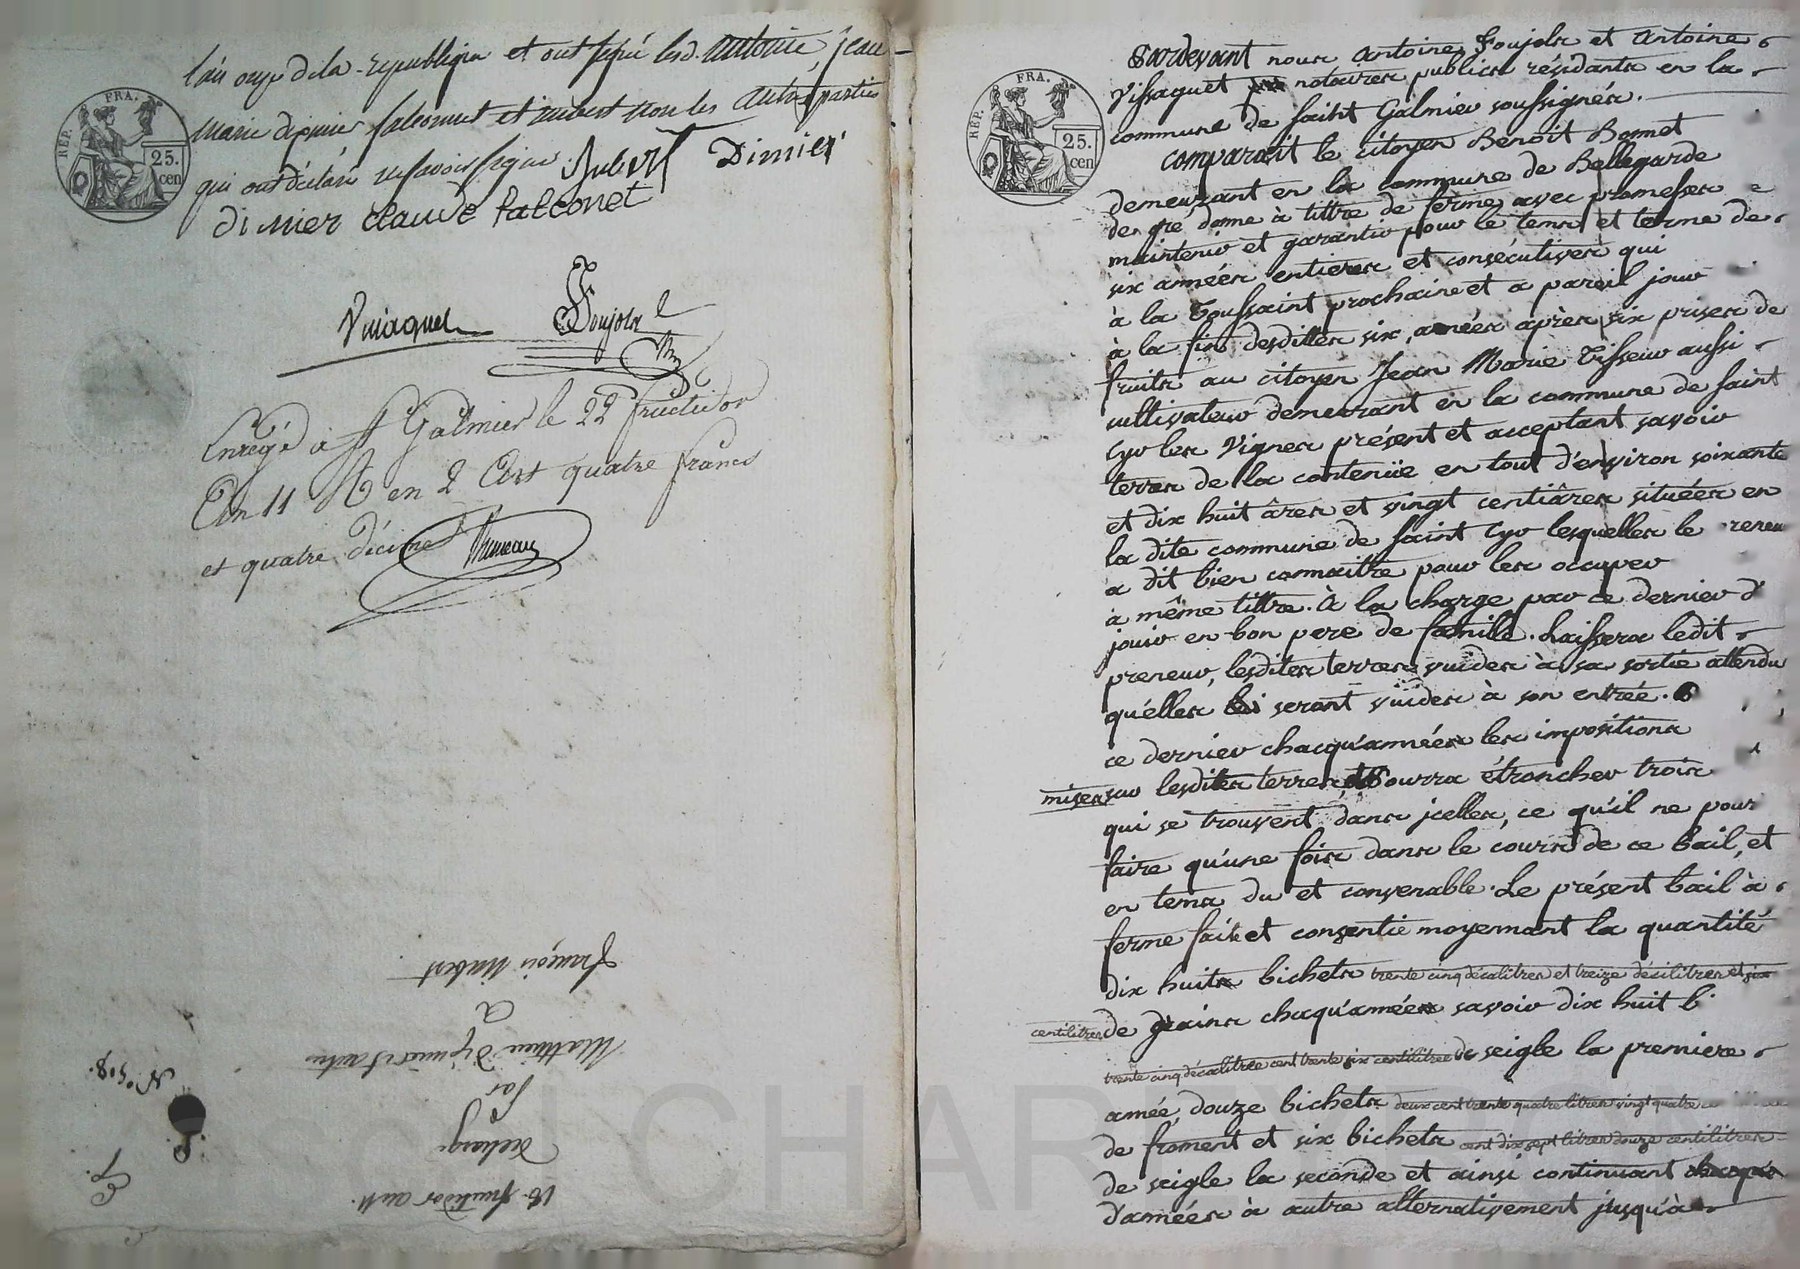 l'an onze de la république et ont signé lesd. antoine, jean
marie dépinier, falconnet et non les autres parties
qui ont déclaré ne savoir signer. Jubert Dimier
dimier claude falconet
Vissaguet Foujols
Enregé à St Galmier le 22 fructidor
an 11 en 2 Cases quatre francs
et quatre décimes
REP. FRA.
25.
cen
françois
à
Matthieu et autre
Par
Echange
18 fructidor an 11.
REP. FRA.
25.
cen
Pardevant nous Antoine Foujols et Antoine
Vissaguet notaires publics résidants en la
commune de saint Galmier soussignés.
Comparait le citoyen Benoit Bonnet
demeurant en la commune de Bellegarde
de gré donne à tittre de ferme avec promesses
maintenir et garantir pour le tems et terme de
six années entieres et consécutives qui
à la Toussaint prochaine et a pareil jour
à la fin desdittes six années après six prises de
fruits au citoyen Jean Marie Tisseur aussi
cultivateur demeurant en la commune de saint
Cyr les Vignes présent et acceptant savoir
terres de la contenüe en tout d'environ soixante
et dix huit âres et vingt centiâres situées en
la dite commune de saint Cyr lesquelles le preneur
a dit bien connaitre pour les occuper
à même tittre. À la charge par ce dernier d
jouir en bon pere de famille. Laissera ledit
preneur, lesdites terres vuides à sa sortie attendu
qu'elles seront vuides à son entrée.
ce dernier chacqu'années les impositions
mises sur lesdites terres, Pourra étroncher trois
qui se trouvent dans jcelles, ce qu'il ne pour
faire qu'une fois dans le cours de ce bail, et
en tems du et convenable. Le présent bail à
ferme fait et consentie moyennant la quantité
dix huit bichets trente cinq décalitres et treize décilitres et six
centilitres de grains chacqu'années savoir dix huit b
trente cinq décalitres cent trente six centilitres de seigle la premiere
année, douze bichets deux cent trente quatre litres vingt quatre
de froment et six bichets cent dix sept litres douze centilitres
de seigle la seconde et ainsi continuant
d'années à autre alternativement jusqu'à